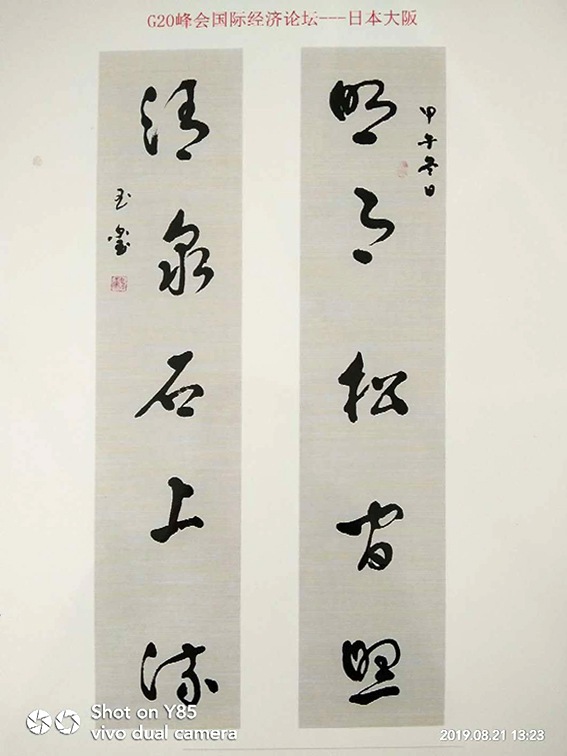 G20峰会国际经济论坛---日本大阪
甲午冬日
明月松间照
清泉石上流
玉玺
Shot on Y85
vivo dual camera
2019.08.21 13:23